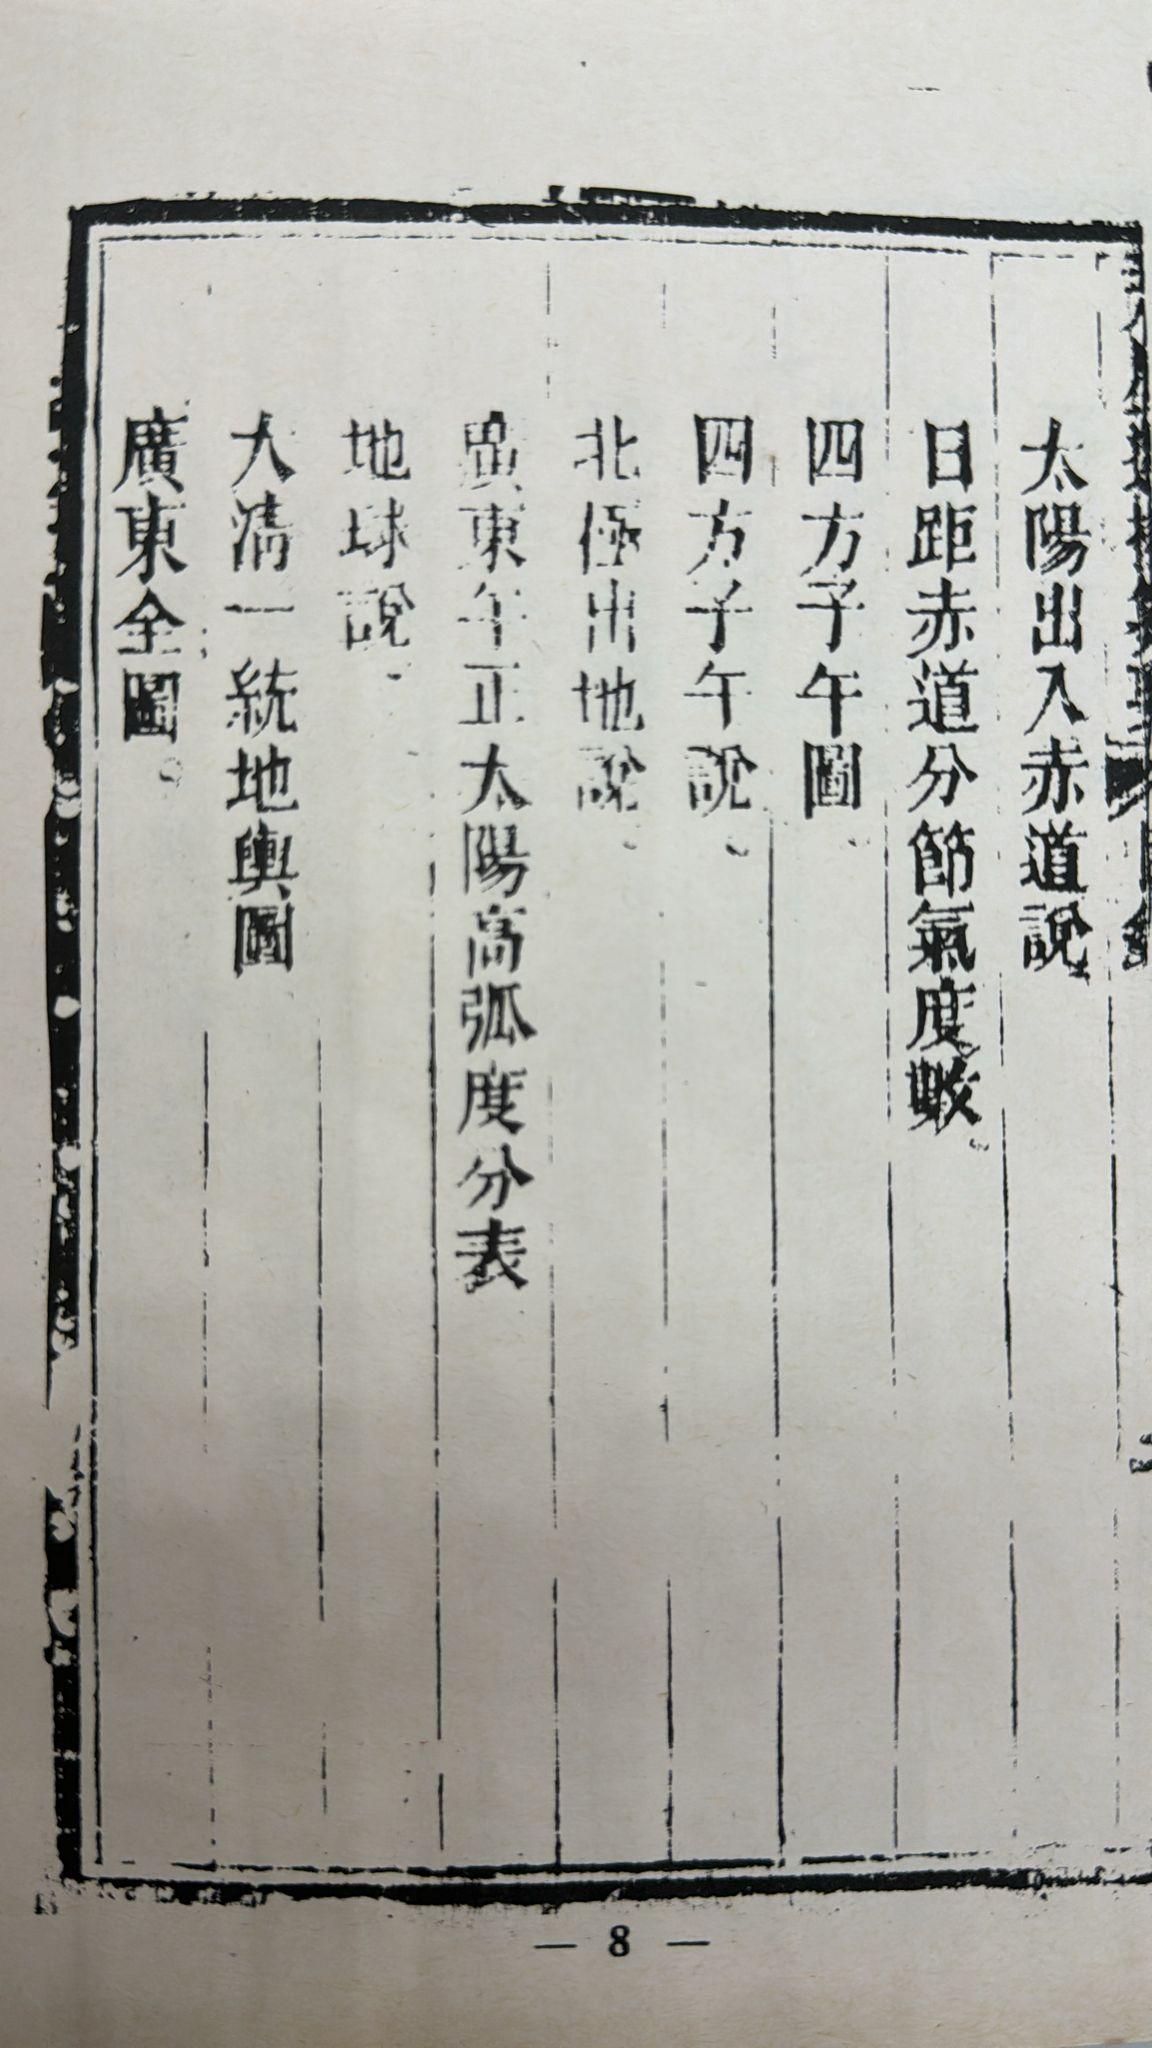 太陽出入赤道說
日距赤道分節氣度數
四方子午圖
四方子午說
北極出地說
廣東午正太陽高弧度分表
地球說
大清一統地輿圖
廣東全圖
— 8 —